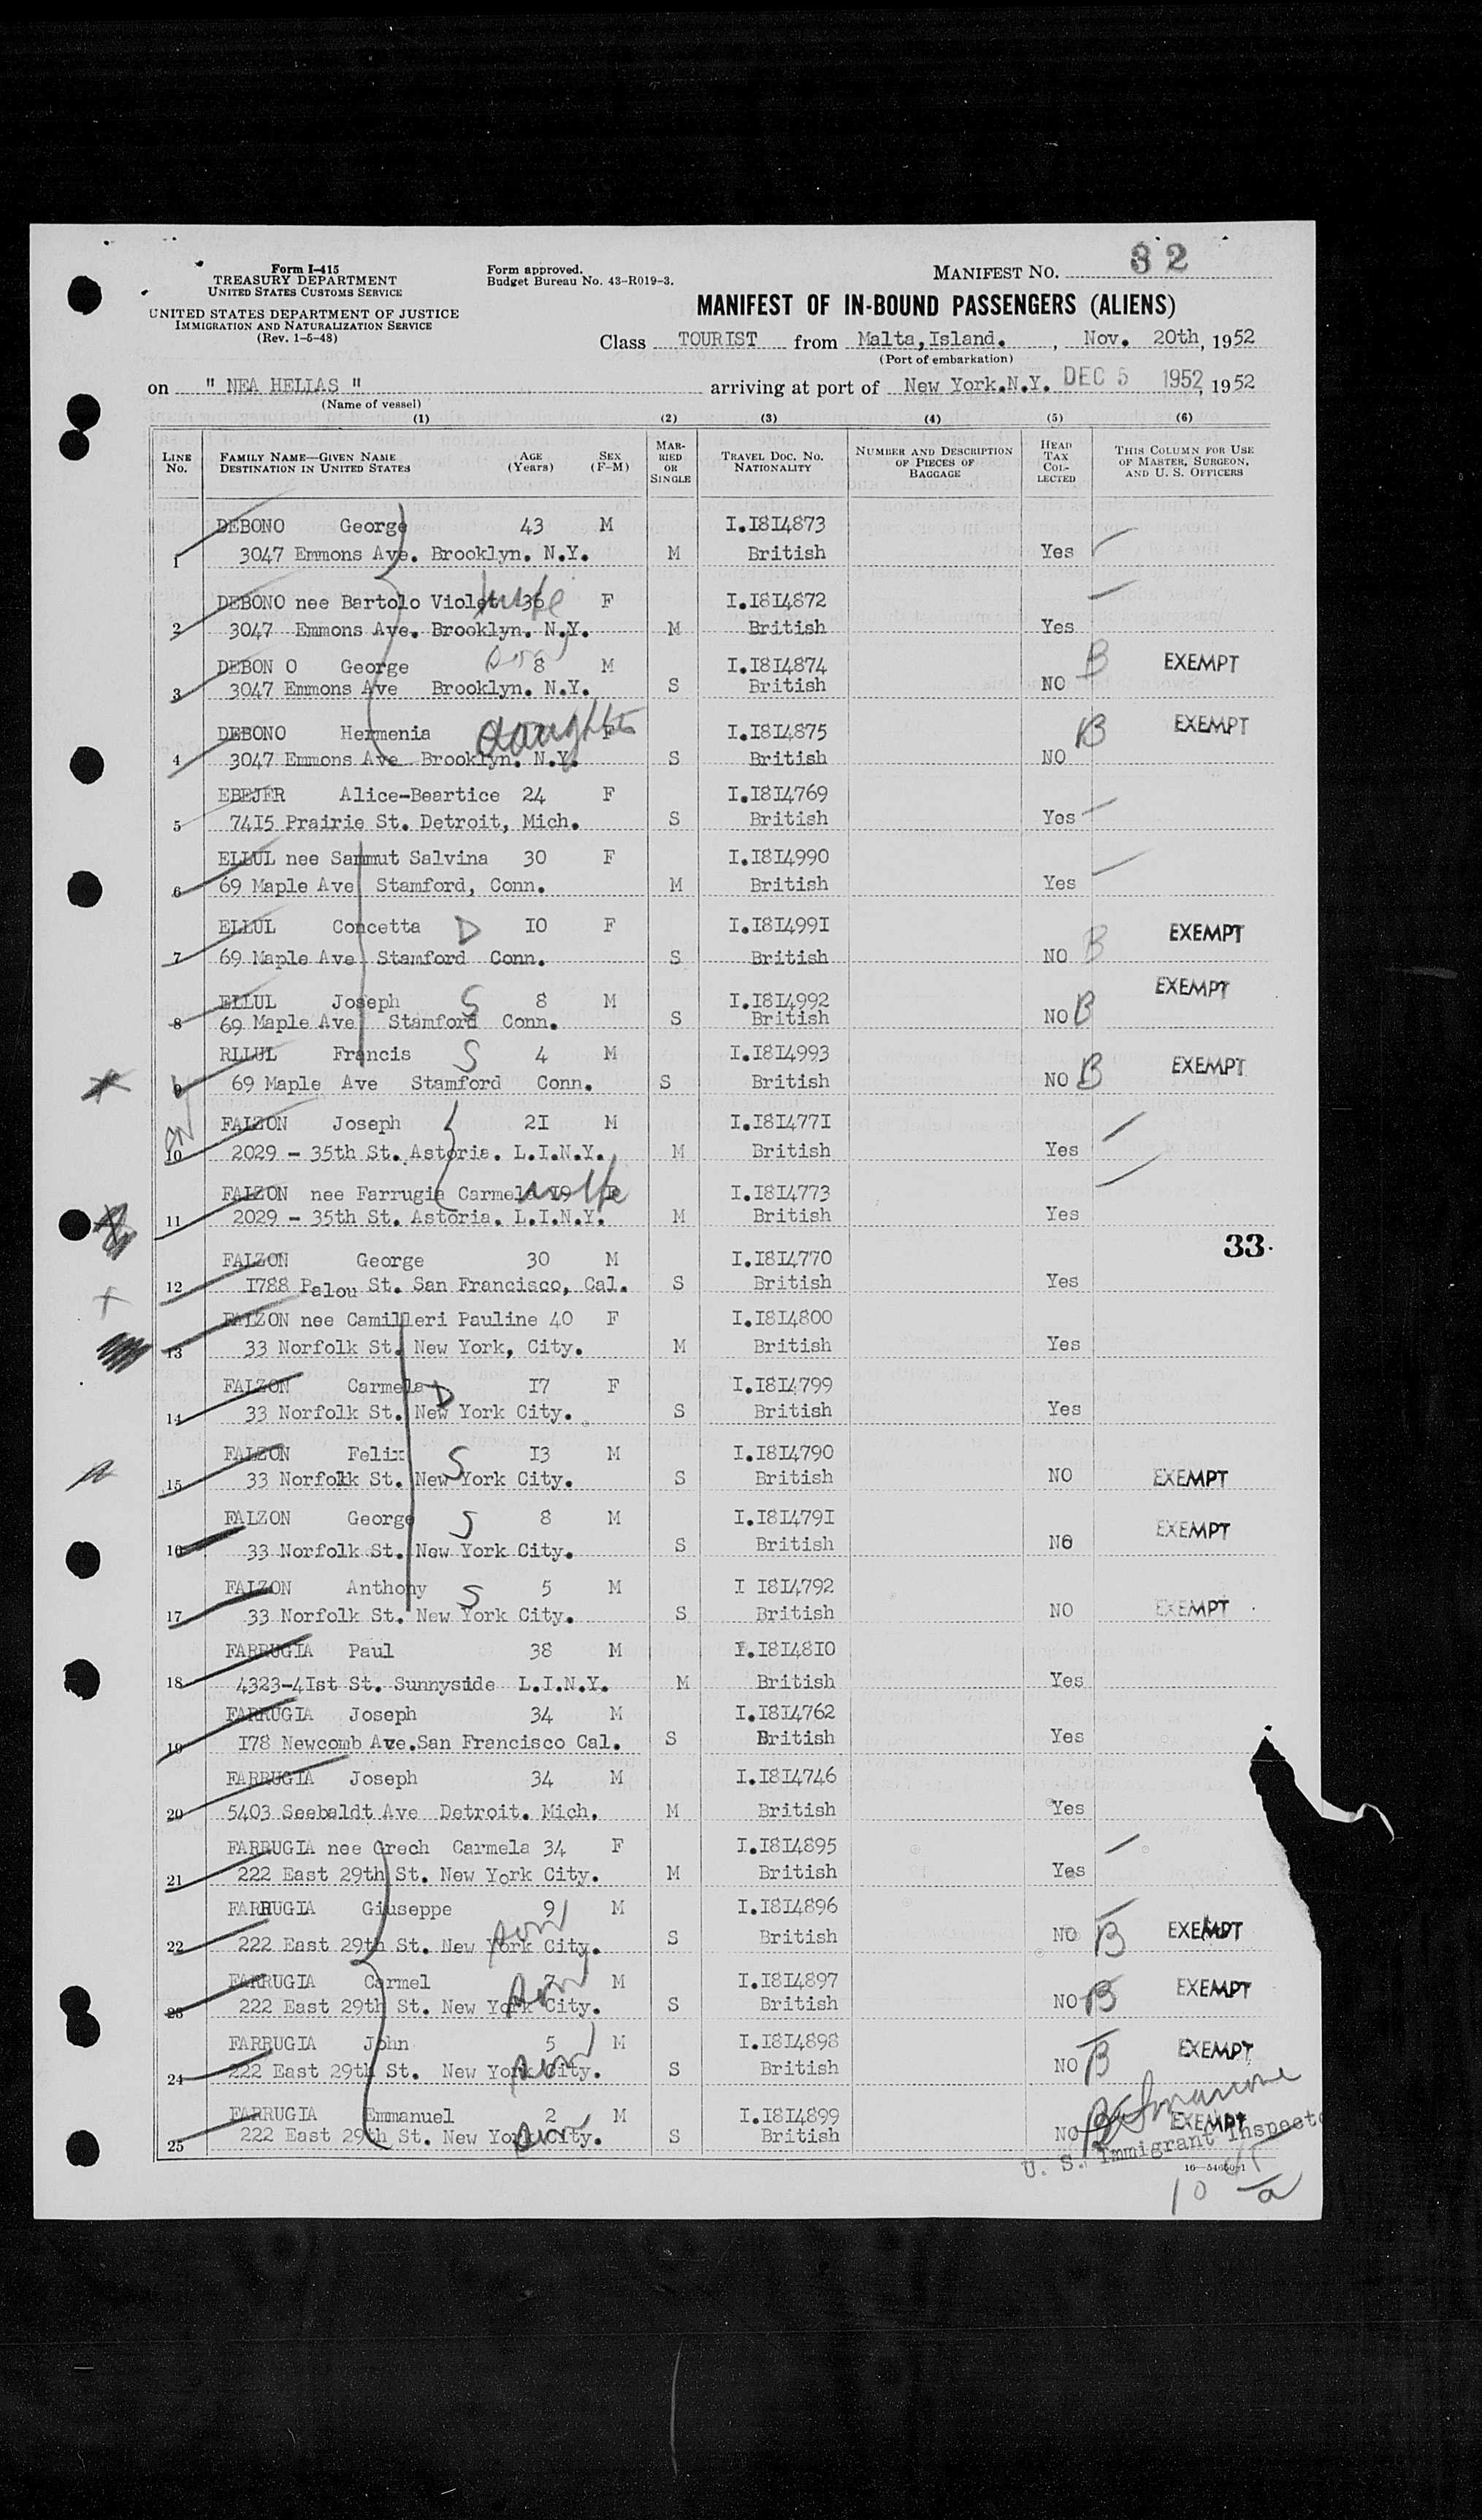 Form I-415
TREASURY DEPARTMENT
UNITED STATES CUSTOMS SERVICE
UNITED STATES DEPARTMENT OF JUSTICE
IMMIGRATION AND NATURALIZATION SERVICE
(Rev. 1-5-48)
Form approved.
Budget Bureau No. 43-R019-3.
MANIFEST NO. 32
MANIFEST OF IN-BOUND PASSENGERS (ALIENS)
Class TOURIST from Malta,Island. , Nov. 20th, 1952
(Port of embarkation)
on " NEA HELIAS " arriving at port of New York.N.Y. DEC 5 1952, 1952
(Name of vessel)
(1) (2) (3) (4) (5) (6)
LINE No. FAMILY NAME—GIVEN NAME DESTINATION IN UNITED STATES AGE (Years) SEX (F-M) MARRIED OR SINGLE TRAVEL DOC. NO. NATIONALITY NUMBER AND DESCRIPTION OF PIECES OF BAGGAGE HEAD TAX COLLECTED THIS COLUMN FOR USE OF MASTER, SURGEON, AND U. S. OFFICERS
DEBONO George 43 M I.I8I4873
1 3047 Emmons Ave. Brooklyn. N.Y. M British Yes
DEBONO nee Bartolo Violet wife 36 F I.I8I4872
2 3047 Emmons Ave. Brooklyn. N.Y. M British Yes
DEBON O George son 8 M I.I8I4874 B EXEMPT
3 3047 Emmons Ave Brooklyn. N.Y. S British NO
DEBONO Hermenia daughter F I.I8I4875 B EXEMPT
4 3047 Emmons Ave Brooklyn. N.Y. S British NO
EBEJER Alice-Beartice 24 F I.I8I4769
5 74I5 Prairie St. Detroit, Mich. S British Yes
ELLUL nee Sammut Salvina 30 F I.I8I4990
6 69 Maple Ave Stamford, Conn. M British Yes
ELLUL Concetta D I0 F I.I8I499I EXEMPT
7 69 Maple Ave Stamford Conn. S British NO B
ELLUL Joseph S 8 M I.I8I4992 EXEMPT
8 69 Maple Ave Stamford Conn. S British NO B
RLLUL Francis S 4 M I.I8I4993 EXEMPT
9 69 Maple Ave Stamford Conn. S British NO B
FALZON Joseph 2I M I.I8I477I
10 2029 - 35th St. Astoria. L.I.N.Y. M British Yes
FALZON nee Farrugia Carmela I9 wife F I.I8I4773
11 2029 - 35th St. Astoria. L.I.N.Y. M British Yes
33.
FALZON George 30 M I.I8I4770
12 I788 Palou St. San Francisco, Cal. S British Yes
FALZON nee Camilleri Pauline 40 F I.I8I4800
13 33 Norfolk St. New York, City. M British Yes
FALZON Carmela D I7 F I.I8I4799
14 33 Norfolk St. New York City. S British Yes
FALZON Felix S I3 M I.I8I4790
15 33 Norfolk St. New York City. S British NO EXEMPT
FALZON George S 8 M I.I8I479I EXEMPT
16 33 Norfolk St. New York City. S British NO
FALZON Anthony S 5 M I I8I4792
17 33 Norfolk St. New York City. S British NO EXEMPT
FARRUGIA Paul 38 M I.I8I48I0
18 4323-4Ist St. Sunnyside L.I.N.Y. M British Yes
FARRUGIA Joseph 34 M I.I8I4762
19 I78 Newcomb Ave.San Francisco Cal. S British Yes
FARRUGIA Joseph 34 M I.I8I4746
20 5403 Seebaldt Ave Detroit. Mich. M British Yes
FARRUGIA nee Grech Carmela 34 F I.I8I4895
21 222 East 29th St. New York City. M British Yes
FARRUGIA Giuseppe 9 M I.I8I4896
22 222 East 29th St. New York City. son S British NO B EXEMPT
FARRUGIA Carmel 7 M I.I8I4897
23 222 East 29th St. New York City. son S British NO B EXEMPT
FARRUGIA John 5 M I.I8I4898 EXEMPT
24 222 East 29th St. New York City. son S British NO B
FARRUGIA Emmanuel 2 M I.I8I4899 EXEMPT
25 222 East 29th St. New York City. son S British NO B
U. S. Immigrant Inspecto
10